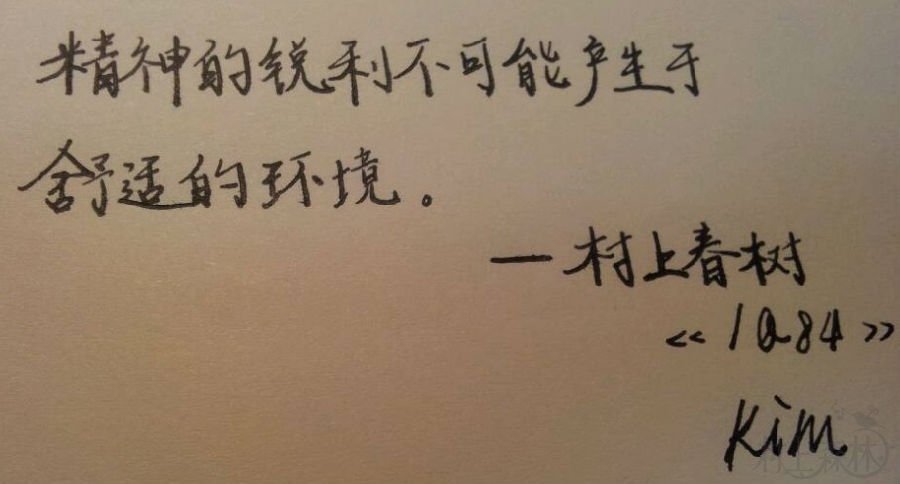 精神的锐利不可能产生于
舒适的环境。
—村上春树
《1Q84》
Kim
村上森林